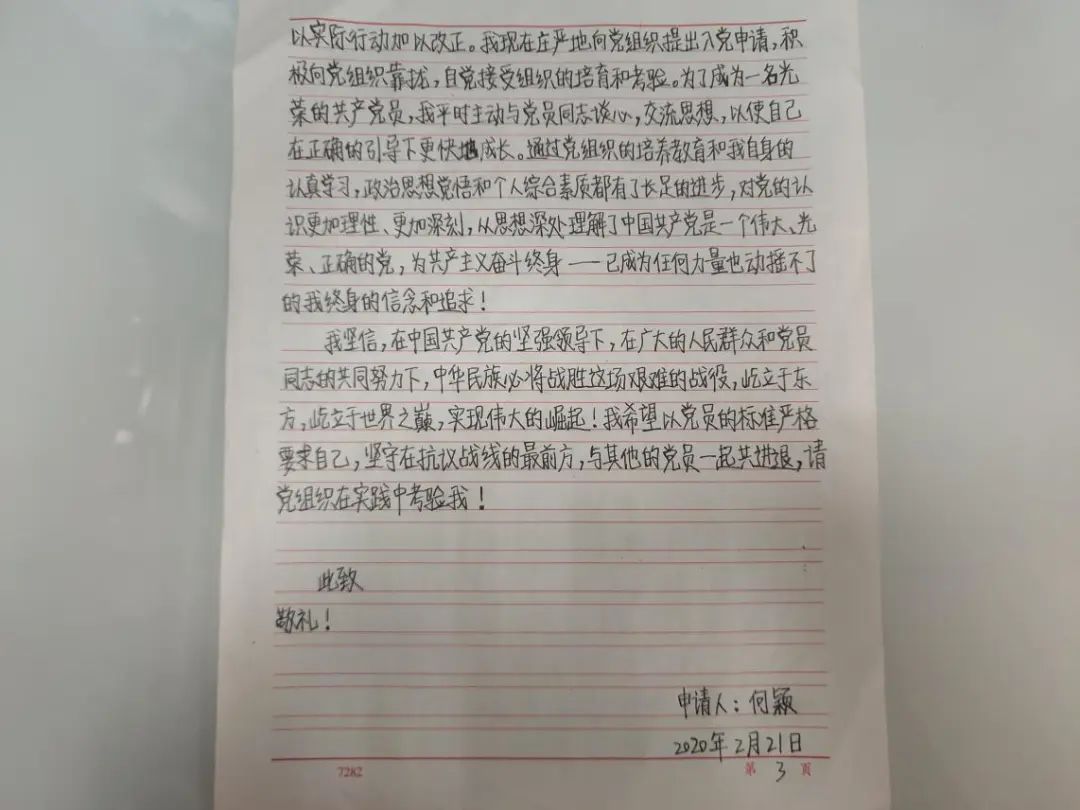 以实际行动加以改正。我现在庄严地向党组织提出入党申请,积
极向党组织靠拢,自觉接受组织的培育和考验。为了成为一名光
荣的共产党员,我平时主动与党员同志谈心,交流思想,以使自己
在正确的引导下更快地成长。通过党组织的培养教育和我自身的
认真学习,政治思想觉悟和个人综合素质都有了长足的进步,对党的认
识更加理性、更加深刻,从思想深处理解了中国共产党是一个伟大、光
荣、正确的党,为共产主义奋斗终身——已成为任何力量也动摇不了
的我终身的信念和追求!
我坚信,在中国共产党的坚强领导下,在广大的人民群众和党员
同志的共同努力下,中华民族必将战胜这场艰难的战役,屹立于东
方,屹立于世界之巅,实现伟大的崛起!我希望以党员的标准严格
要求自己,坚守在抗议战线的最前方,与其他的党员一起共进退,请
党组织在实践中考验我!
此致
敬礼!
申请人:何颖
2020年2月21日
7282
第 3 页